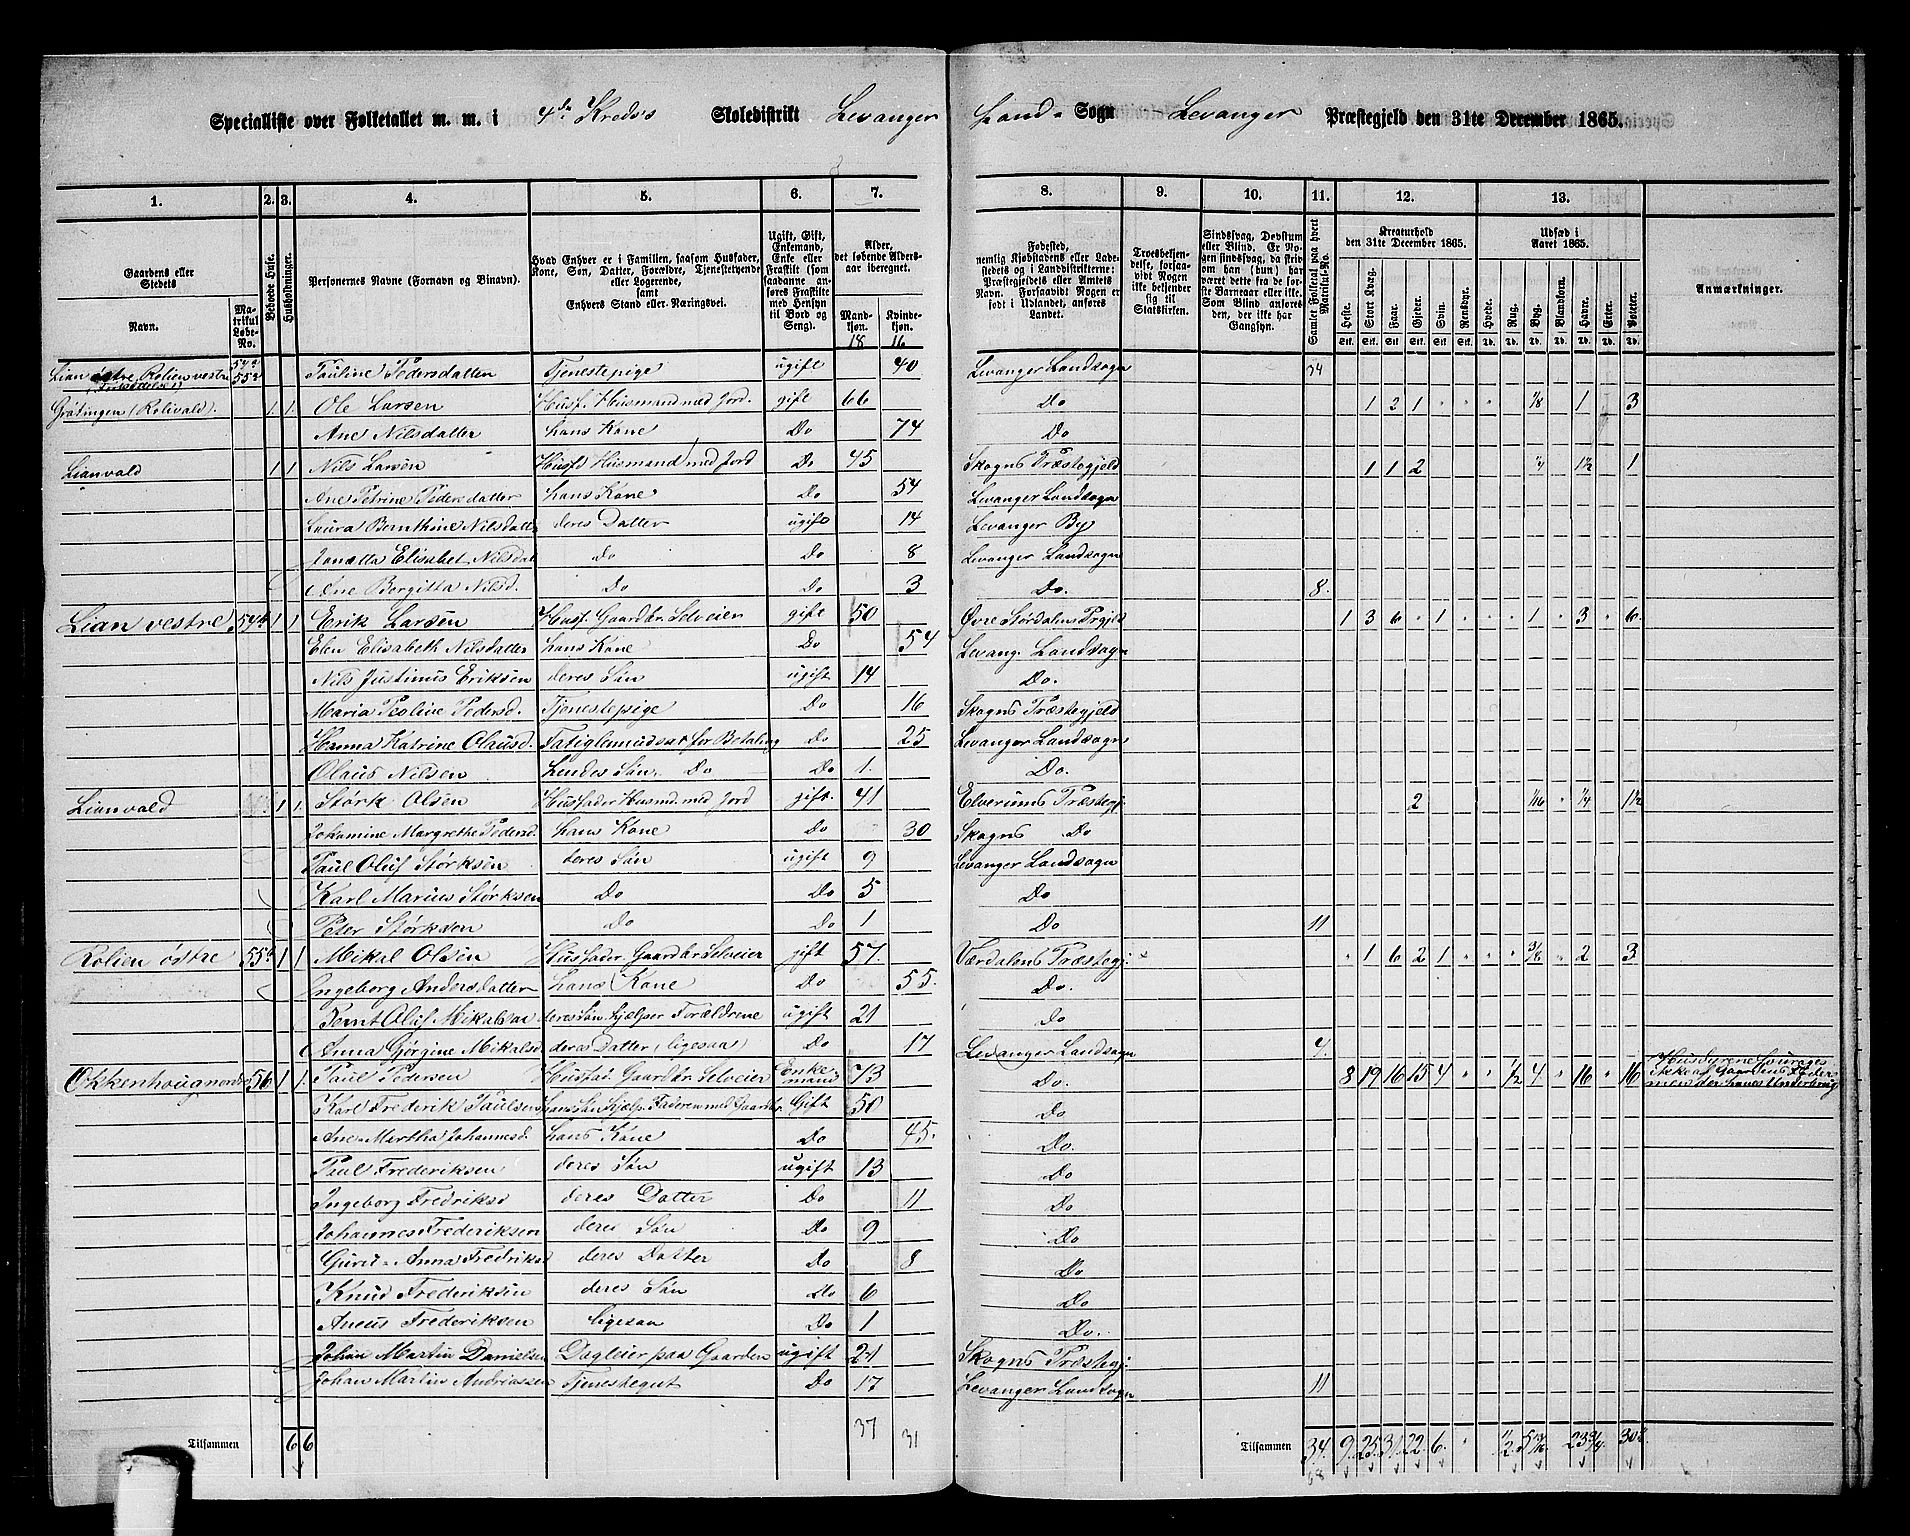 Specialliste over Folketallet m. m. i 4de Kreds's Skoledistrikt Levanger Land- Sogn Levanger Præstegjeld den 31te December 1865.
1. 2. 3. 4. 5. 6. 7. 8. 9. 10. 11. 12. 13.
Gaardens eller Stedets Navn. Matrikul Løbe-No. Beboede Huse. Husholdninger. Personernes Navne (Fornavn og Binavn). Hvad Enhver er i Familien, saasom Husfader, Kone, Søn, Datter, Forældre, Tjenestetyende eller Logerende, samt Enhvers Stand eller Næringsvei. Ugift, Gift, Enkemand, Enke eller Fraskilt (som saadanne anføres Fraskilte med Hensyn til Bord og Seng). Alder, det løbende Alders-aar iberegnet. Mandkjøn. Kvindekjøn.
Fødested, nemlig Kjøbstadens eller Ladestedets og i Landdistrikterne: Præstegjeldets eller Amtets Navn. Forsaavidt Nogen er født i Udlandet, anføres Landet. Troesbekjendelse, forsaavidt Nogen ikke bekjender sig til Statskirken. Sindssvag, Døvstum eller Blind. Er Nogen sindssvag, da skrives om han (hun) har været det fra første Barneaar eller ikke. Som Blind anføres den, der ikke har Gangsyn. Samlet Folketal paa hvert Matrikul-No. Kreaturhold den 31te December 1865. Udsæd i Aaret 1865. Anmærkninger.
Heste. Stort Kvæg. Faar. Gjeder. Svin. Rensdyr. Hvede. Rug. Byg. Blandkorn. Havre. Erter. Poteter.
18 16
Lian østre Rolien vestre 54a 55a Pauline Pedersdatter Tjenestepige ugift 40 Levanger Landsogn 34
Grøtingen (Rolivald). 1. 1. Ole Larsen Husf. Husmand med Jord gift 66 Do 1 2 1 " " " 1/8 1 3
Ane Nilsdatter hans Kone Do 74 Do
Lianvald 1 1 Nils Larsen Husf Husmand med Jord Do 45 Skogns Præstegjeld 1 1 2 1/4 1½ 1
Ane Petrine Pedersdatter hans Kone Do 54 Levanger Landsogn
Laura Bernthine Nilsdatter deres Datter ugift 14 Levanger By
Janetta Elisabet Nilsdat Do Do 8 Levanger Landsogn
Ane Bergitta Nilsd. Do Do 3 Do. 8.
Lian vestre 54b 1 1 Erik Larsen Husf. Gaardbr. Selveier gift 50 Øvre Størdalens Prgjeld 1 3 6 " 1 " " " 1 " 3 " 6.
Elen Elisabeth Nilsdatter hans Kone Do 54 Levang. Landsogn
Nils Justinus Eriksen deres Søn ugift 14 Do.
Maria Peoline Pedersd. Tjenestepige Do 16 Skogns Præstegjeld
Hanna Katrine Olausd. Fatiglem udsat for Betaling Do 25 Levanger Landsogn
Olaus Nilsen hendes Søn. Do Do 1. Do.
Lianvald 1 1. Størk Olsen Husfader Husmd. med Jord gift. 41 Elverums Præstegj. 2 1/16 " 1/4 " 1½
Johamine Margrethe Pedersd. hans Kone Do 30 Skogns Do
Paul Oluf Størksen deres Søn ugift 9 Levanger Landsogn
Karl Marius Størksen Do Do 5 Do
Peter Størksen Do Do 1 Do 11
Rolien østre 55b 1 1 Mikal Olsen Husfader. Gaardbr. Selveier gift 57. Værdalens Præstegj. " 1 6 2 1 " " " 3/8 " 2 " 3
Ingeborg Andersdatter hans Kone Do 55. Do.
Bernt Oluf Mikalsen deres Søn, hjælper Forældrene ugift 21 Do
Anna Gjørgine Mikalsd deres Datter, ligesaa Do 17 Levanger Landsogn 4.
Okkenhoug nordre 56 1 1. Paul Pedersen Husfad. Gaardbr. Selveier Enkemand 73 Do. 8 19 16 15 4 " " 1/2 4 " 16 " 16
Karl Frederik Paulsen hans Søn hjælp. Faderen med Gaardbr. Gift 50 Do
Ane Martha Johannesd. hans Kone Do 45. Do.
Paul Frederiksen deres Søn ugift 13 Do
Ingeborg Fredriksd deres Datter Do 11 Do
Johannes Frederiksen deres Søn Do 9 Do
Guru-Anna Fredriksd deres Datter Do 8 Do
Knud Frederiksen deres Søn Do 6 Do
Aneus Frederiksen ligesaa Do 1 Do.
Johan Martin Danielsen Dagleier paa Gaarden ugift 24 Skogns Præstegj.
Johan Martin Andriassen Tjenestegut Do 17 Levanger Landsogn 11
37 31
Tilsammen 6 6 Tilsammen 34. 9. 25. 31. 22. 6. " 1/2 23¾
68